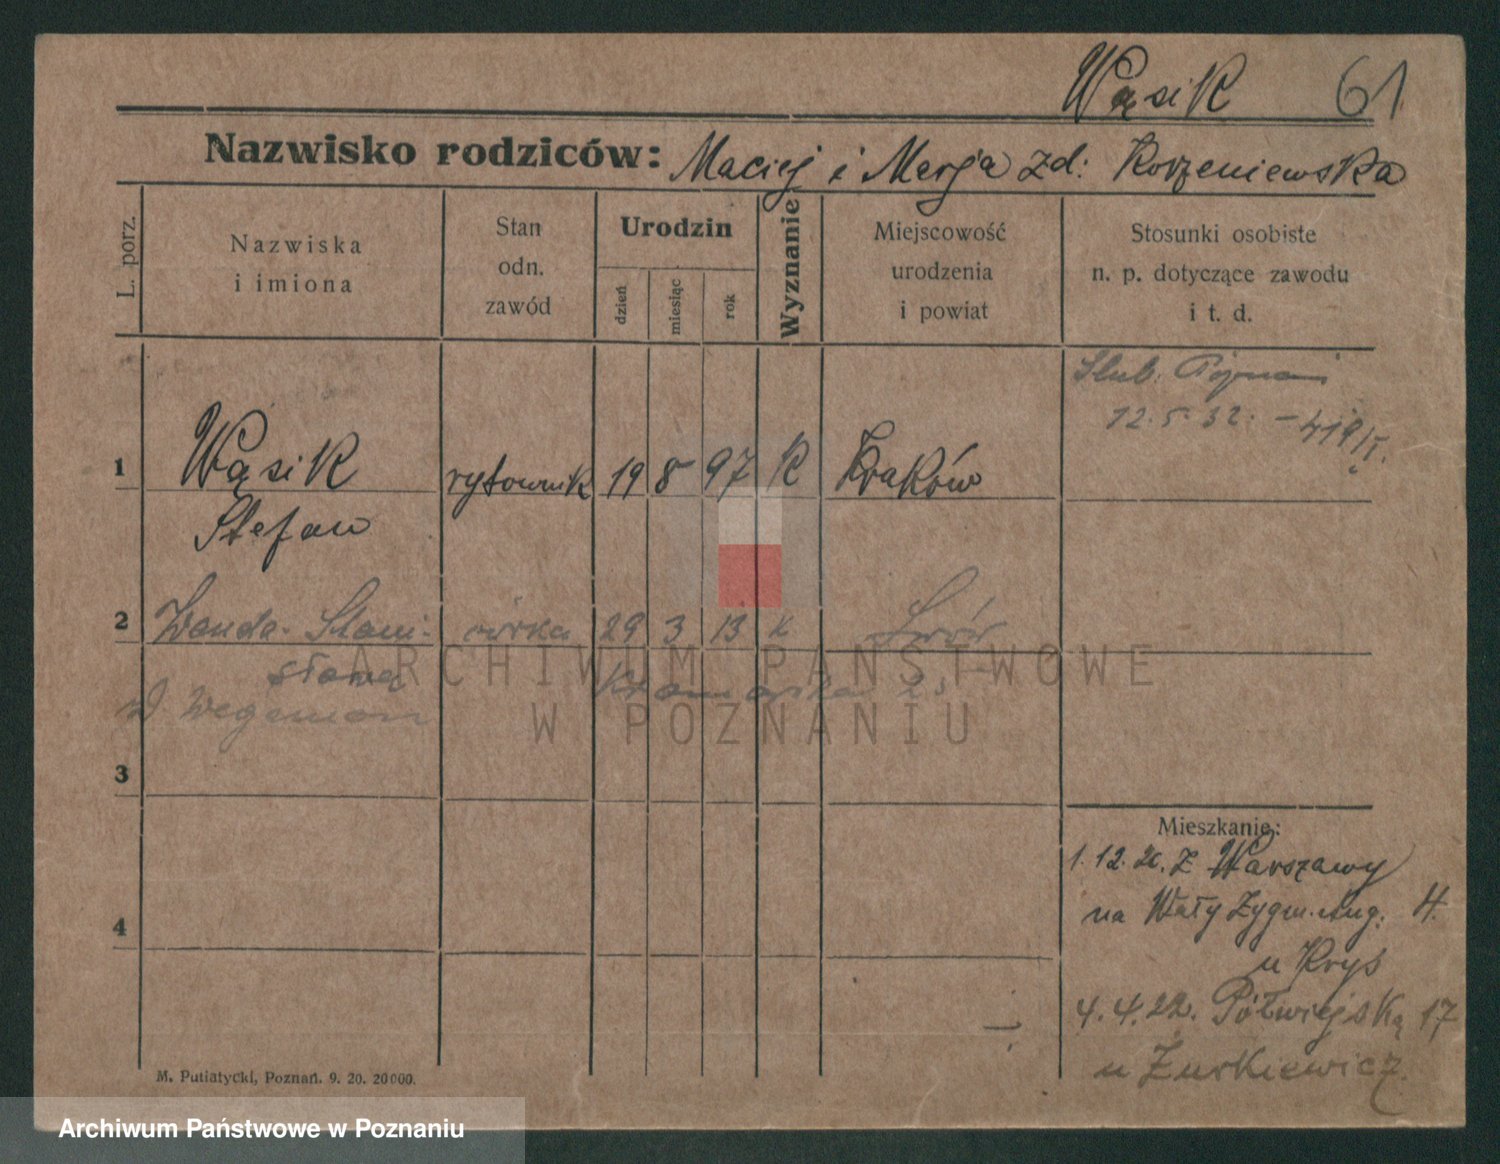 Wąsik 61
Nazwisko rodziców: Maciej i Marja zd: Korzeniewska
L. porz.
Nazwiska
i imiona
Stan
odn.
zawód
Urodzin
dzień
miesiąc
rok
Wyznanie
Miejscowość
urodzenia
i powiat
Stosunki osobiste
n. p. dotyczące zawodu
i t. d.
Ślub. Poznań
12.5.32. - 419/II.
1 Wąsik rytownik 19 8 97 K Kraków
Stefan
2 Wanda Stani- córka 29 3 13 K Lwów
sława
ARCHIWUM PAŃSTWOWE
W POZNANIU
3
Mieszkanie:
1.12.20. Z Warszawy
na Wały Zygm. Aug. 4.
4
u Kryś
4.4.22. Półwiejską 17
u Żurkiewicz.
M. Putiatycki, Poznań. 9. 20. 20000.
Archiwum Państwowe w Poznaniu